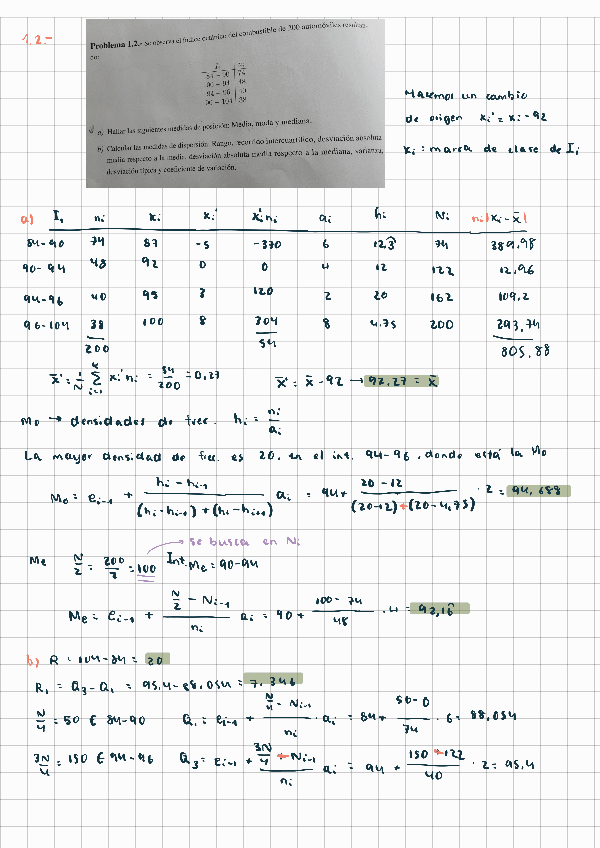 1.2.-
Problema 1.2.- Se observa el índice octánico del combustible de 200 automóviles resultan-
do:
Ii ni
84 - 90 74
90 - 94 48
94 - 96 40
96 - 104 38
a) Hallar las siguientes medidas de posición: Media, moda y mediana.
b) Calcular las medidas de dispersión: Rango, recorrido intercuartílico, desviación absoluta
media respecto a la media, desviación absoluta media respecto a la mediana, varianza,
desviación típica y coeficiente de variación.
Hacemos un cambio
de origen xi' = xi - 92
xi : marca de clase de Ii
a) Ii ni xi xi' xi'ni ai hi Ni ni|xi - x̄|
84-90 74 87 -5 -370 6 12.3̂ 74 389,98
90-94 48 92 0 0 4 12 122 12,96
94-96 40 95 3 120 2 20 162 109,2
96-104 38 100 8 304 8 4.75 200 293,74
200 54 805,88
x̄' = 1/N Σ xi' ni = 54/200 = 0,27 x̄' = x̄ - 92 → 92,27 = x̄
Mo → densidades de frec. hi = ni/ai
La mayor densidad de frec. es 20, en el int. 94-96, donde está la Mo
Mo = ei-1 + (hi - hi-1)/((hi - hi-1) + (hi - hi+1)) ai = 94 + (20 - 12)/((20-12) + (20 - 4,75)) · 2 = 94,688
se busca en Ni
Me N/2 = 200/2 = 100 Int. Me = 90-94
Me = ei-1 + (N/2 - Ni-1)/ni ai = 90 + (100 - 74)/48 · 4 = 92,16̂
b) R = 104 - 84 = 20
RI = Q3 - Q1 = 95,4 - 88,054 = 7,346
N/4 = 50 ∈ 84-90 Q1 = ei-1 + (N/4 - Ni-1)/ni · ai = 84 + (50 - 0)/74 · 6 = 88,054
3N/4 = 150 ∈ 94-96 Q3 = ei-1 + (3N/4 - Ni-1)/ni ai = 94 + (150 - 122)/40 · 2 = 95,4